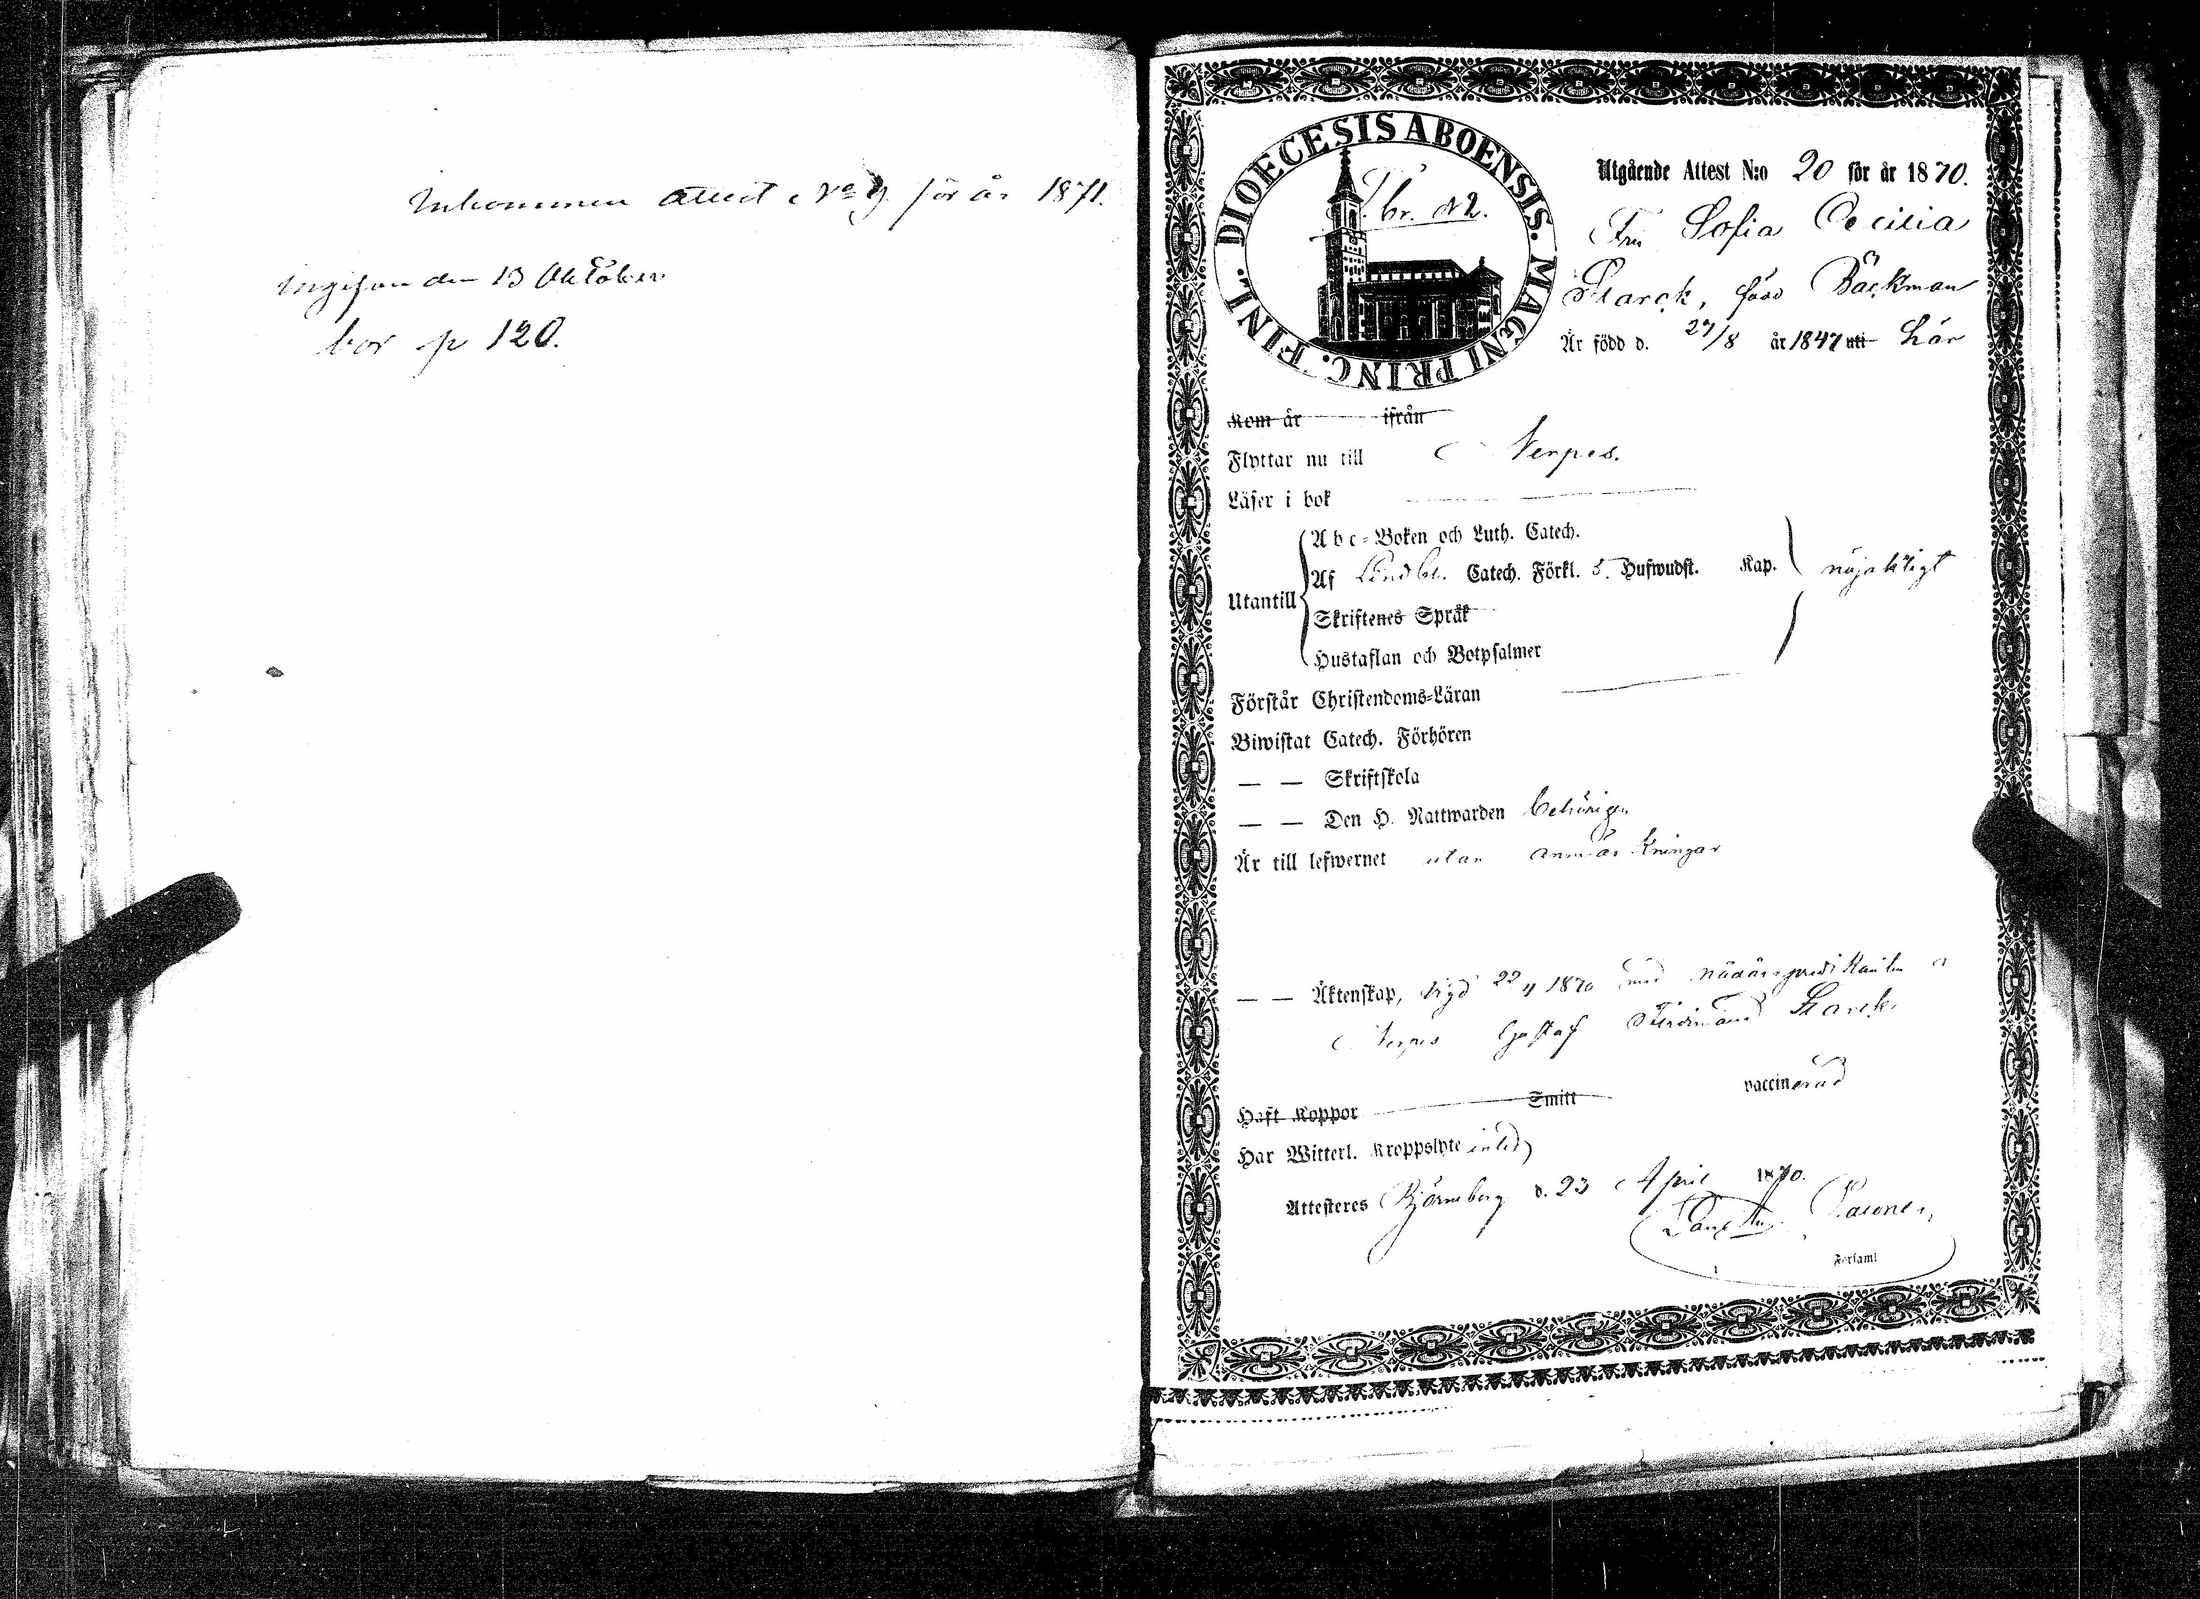 Inkommen attest No 9. för år 1871.
ingifven den 13 Oktober
bor p 120.
DIOECESIS ABOENSIS. MAGNI PRINC. FINL.
br. N 2.
Utgående Attest N:o 20 för år 1870.
Fru Sofia Cecilia
Starck, född Bäckman
Är född d. 27/8 år 1847 uti här
Kom år ifrån
Flyttar nu till Nerpes.
Läser i bok
Abc-Boken och Luth. Catech.
Af Lindbl. Catech. Förkl. 5. Hufwudst. Kap. nöjaktigt
Utantill
Skriftenes Språk
Hustaflan och Botpsalmer
Förstår Christendoms-Läran
Biwistat Catech. Förhören
— — Skriftskola
— — Den H. Nattwarden behörigen
Är till lefwernet utan anmärkningar
— — Äktenskap, vigd 22/4 1870 med nådårspredikanten i
Nerpes Gustaf Ferdinand Starck.
Haft Koppor Smitt vaccinerad
Har Witterl. Kroppslyte intet
Attesteres Björneborg d. 23 April 1870.
Församl